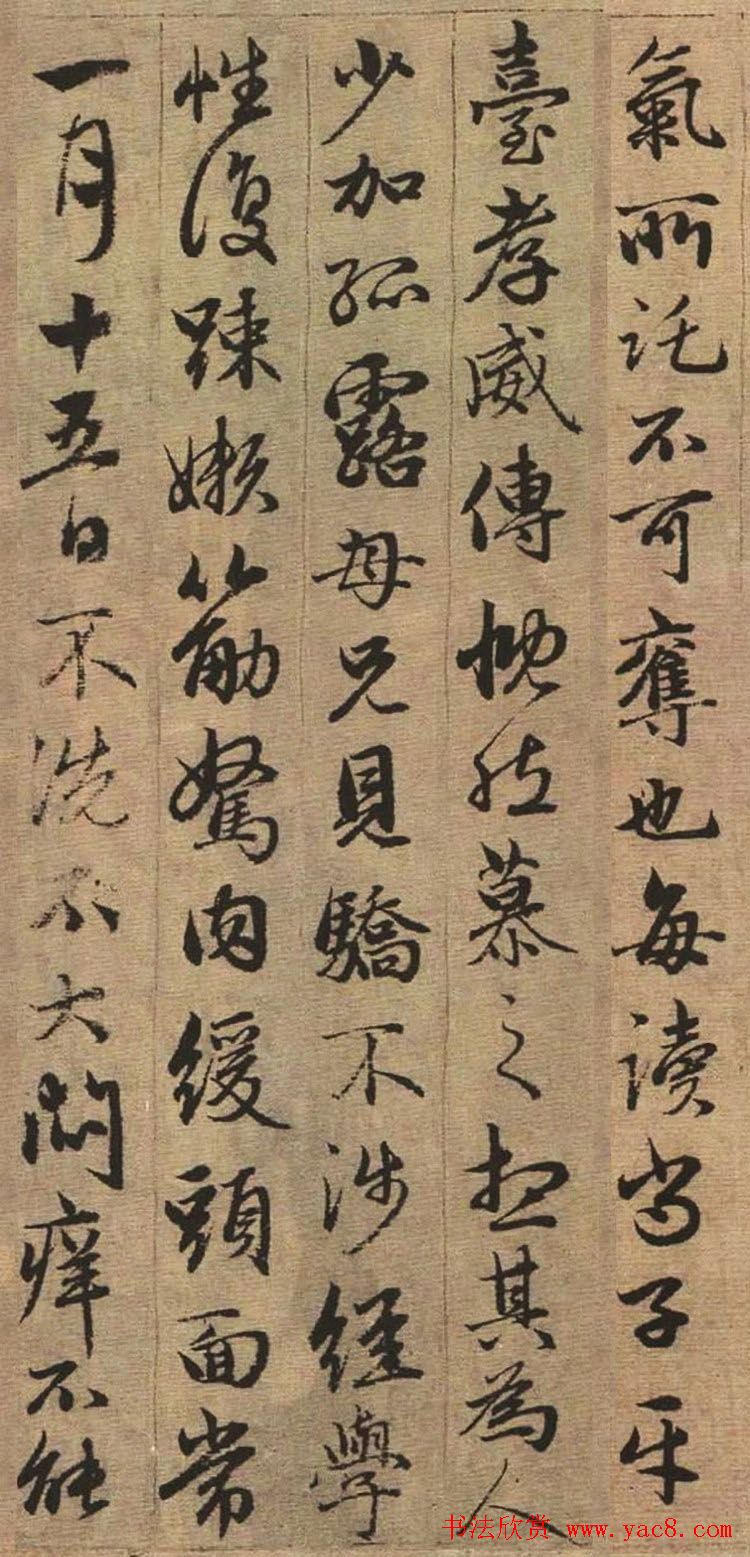 氣所託不可奪也每讀尚子平
臺孝威傳慨然慕之想其為人
少加孤露母兄見驕不涉經學
性復疎嬾筋駑肉緩頭面常
一月十五日不洗不大悶癢不能
书法欣赏 www.yac8.com